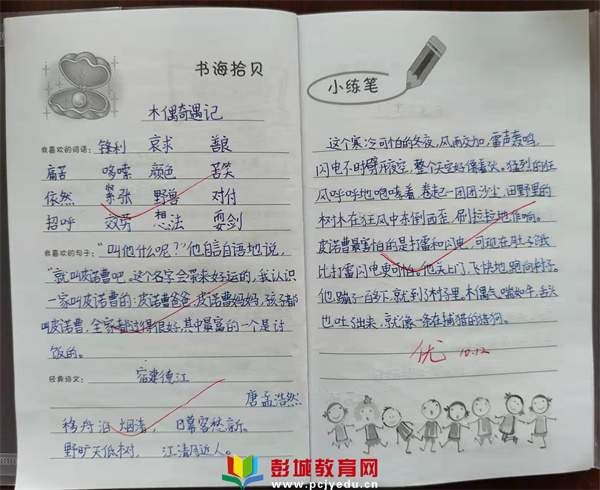 书海拾贝
木偶奇遇记
我喜欢的词语：锋利 哀求 善良
哆嗦 颜色 苦笑
依然 紧张 野兽 对付
招呼 效劳 想法 耍剑
我喜欢的句子："叫他什么呢？"他自言自语地说，
"就叫皮诺曹吧，这个名字会带来好运的，我认识
一家叫皮诺曹的：皮诺曹爸爸，皮诺曹妈妈，孩子都
叫皮诺曹，全家都过得很好，其中最富的一个是讨
饭的。
经典诗文： 宿建德江
唐 孟浩然
移舟泊烟渚， 日暮客愁新。
野旷天低树， 江清月近人。
小练笔
这个寒冷可怕的冬夜，风雨交加，雷声轰鸣，
闪电不时劈开夜空，整个天空好像着火。猛烈的狂
风呼呼地咆哮着，卷起一团团沙尘，田野里的
树木在狂风中东倒西歪，刷拉拉地作响。
皮诺曹最害怕的是打雷和闪电，可现在肚子饿
比打雷闪电更可怕。他关上门，飞快地跑向村子。
他蹦了一百多下，就到了村子里。木偶气喘如牛，舌头
也吐了出来，就像一条在捕猎的猎狗。
优 10.12
彭城教育网
www.pcjyedu.cn